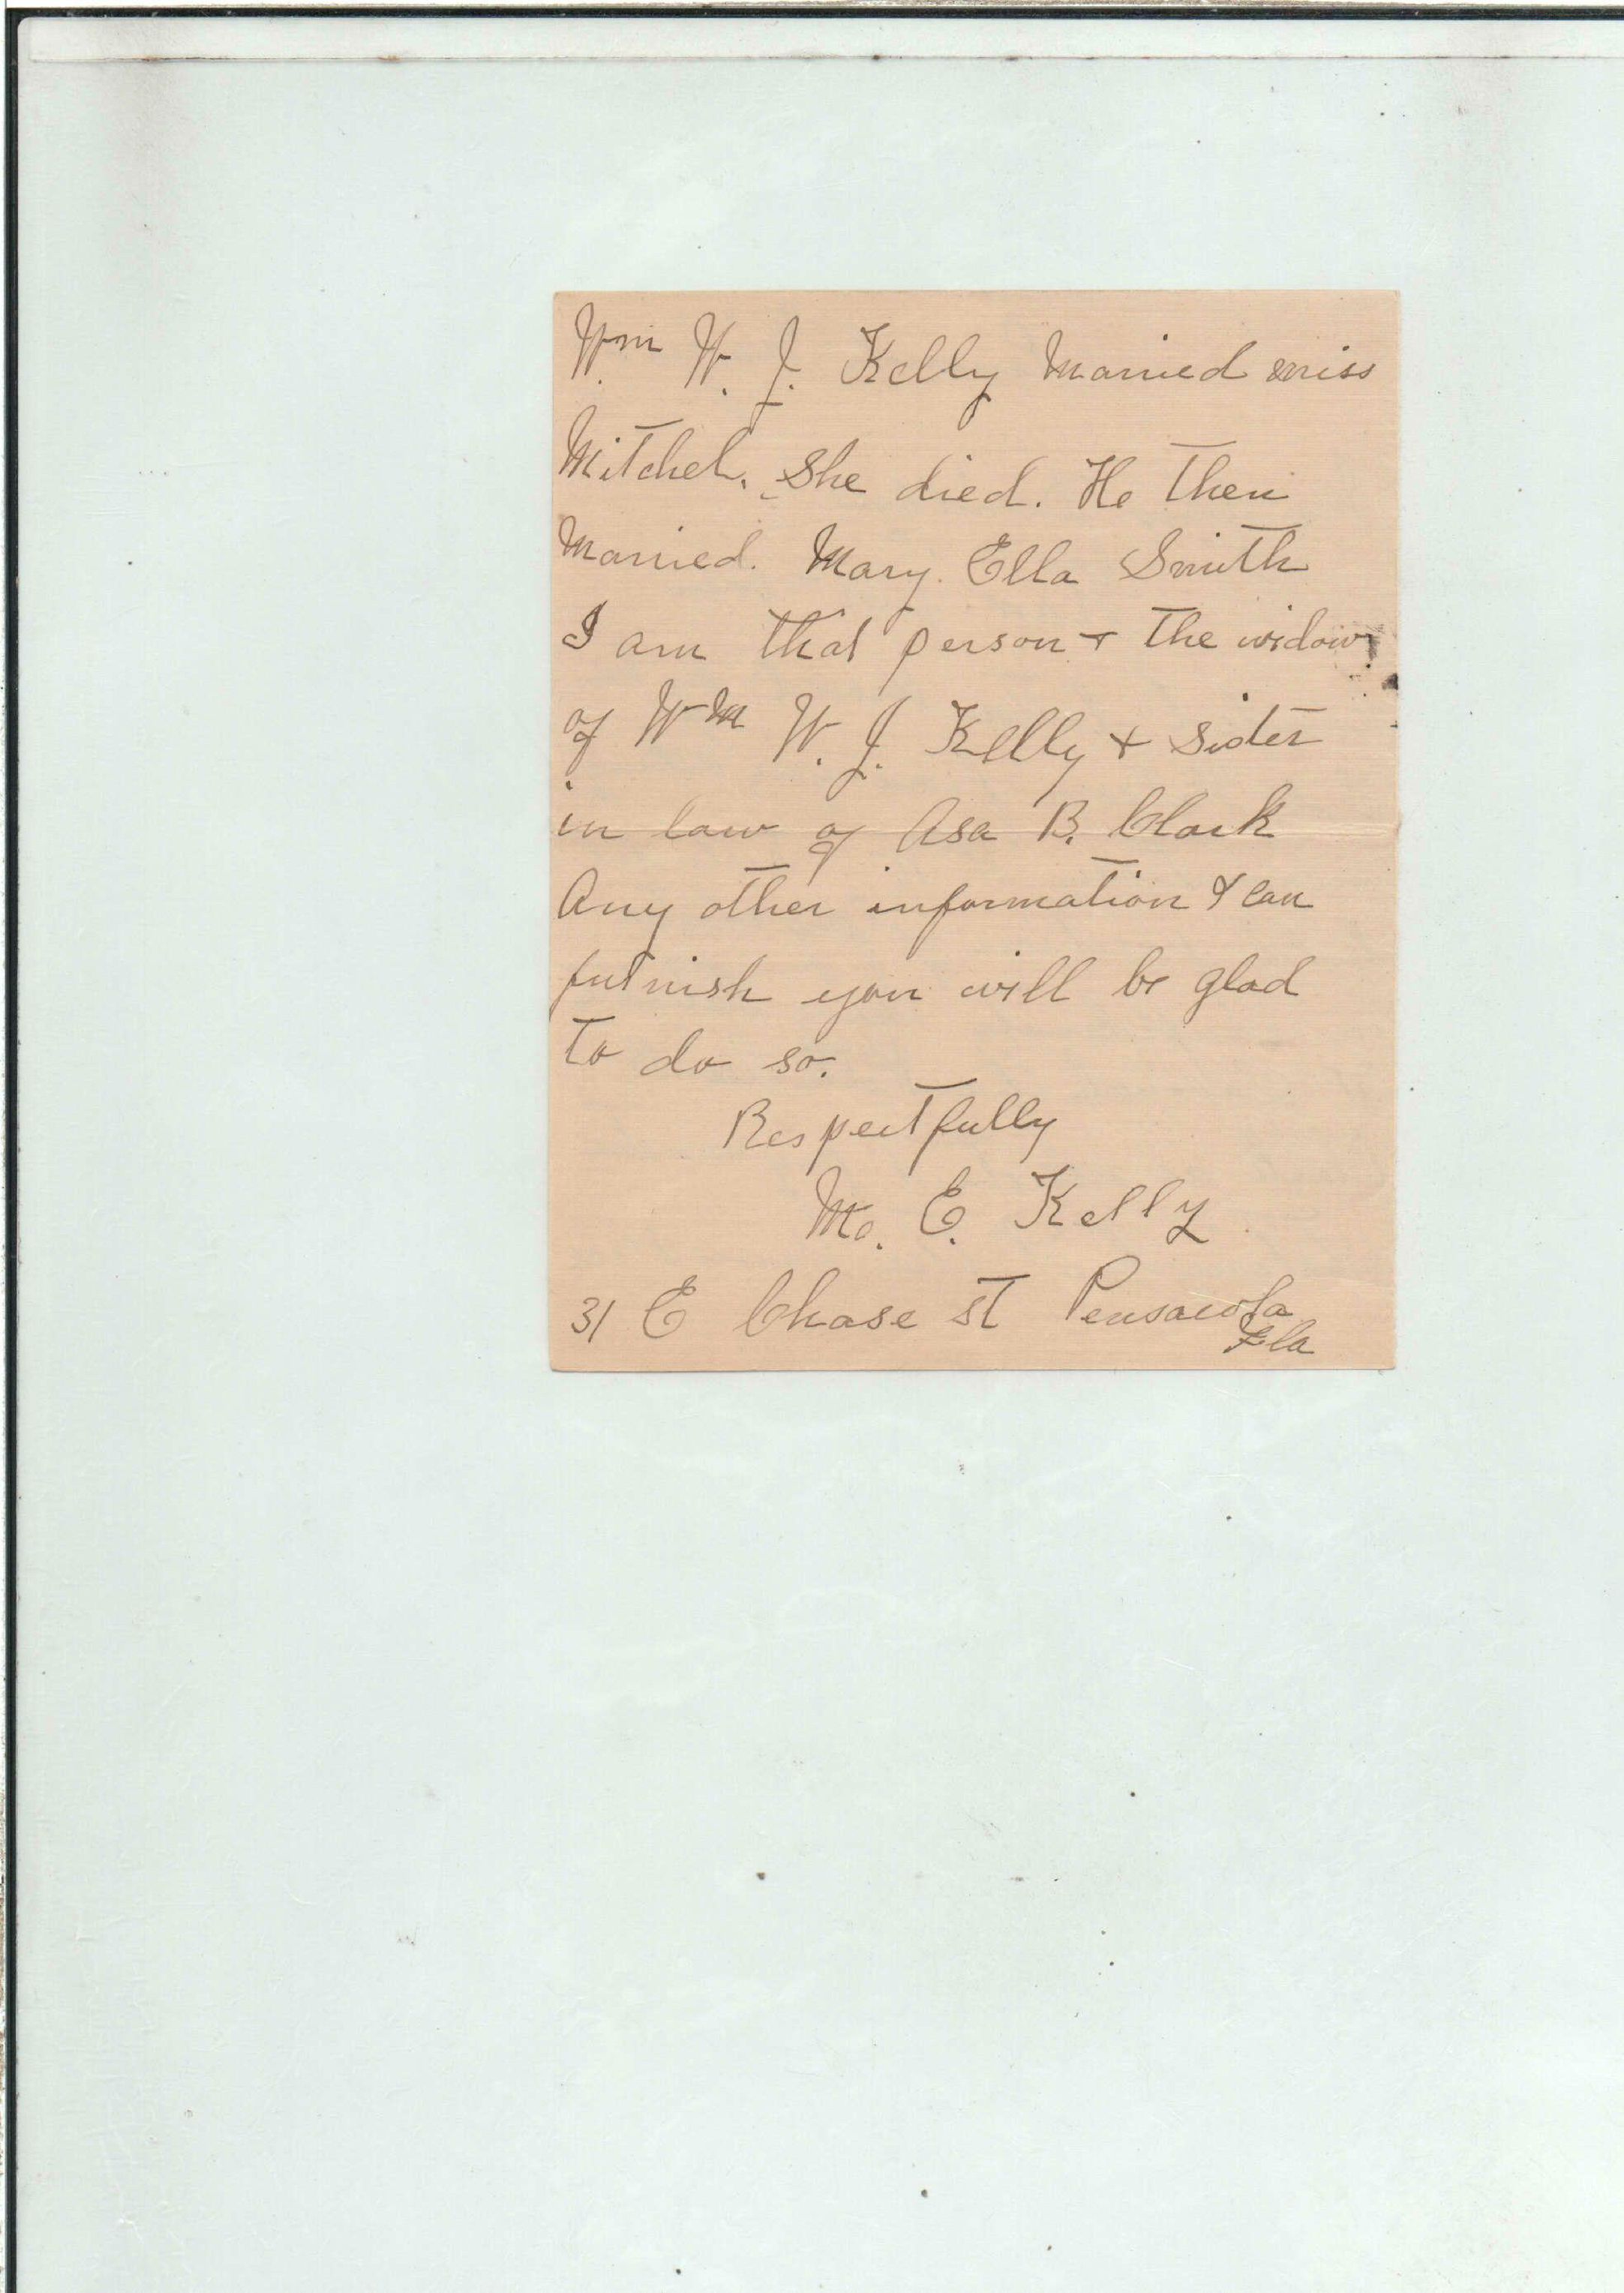 Wm W. J. Kelly Married miss
Mitchel. She died. He Then
Married. Mary. Ella Smith
I am that person + the widow
of Wm W. J. Kelly + Sister
in law of Asa B. Clark
Any other information I can
furnish you will be glad
To do so.
Respectfully
M. E. Kelly
31 E Chase st Pensacola
Fla